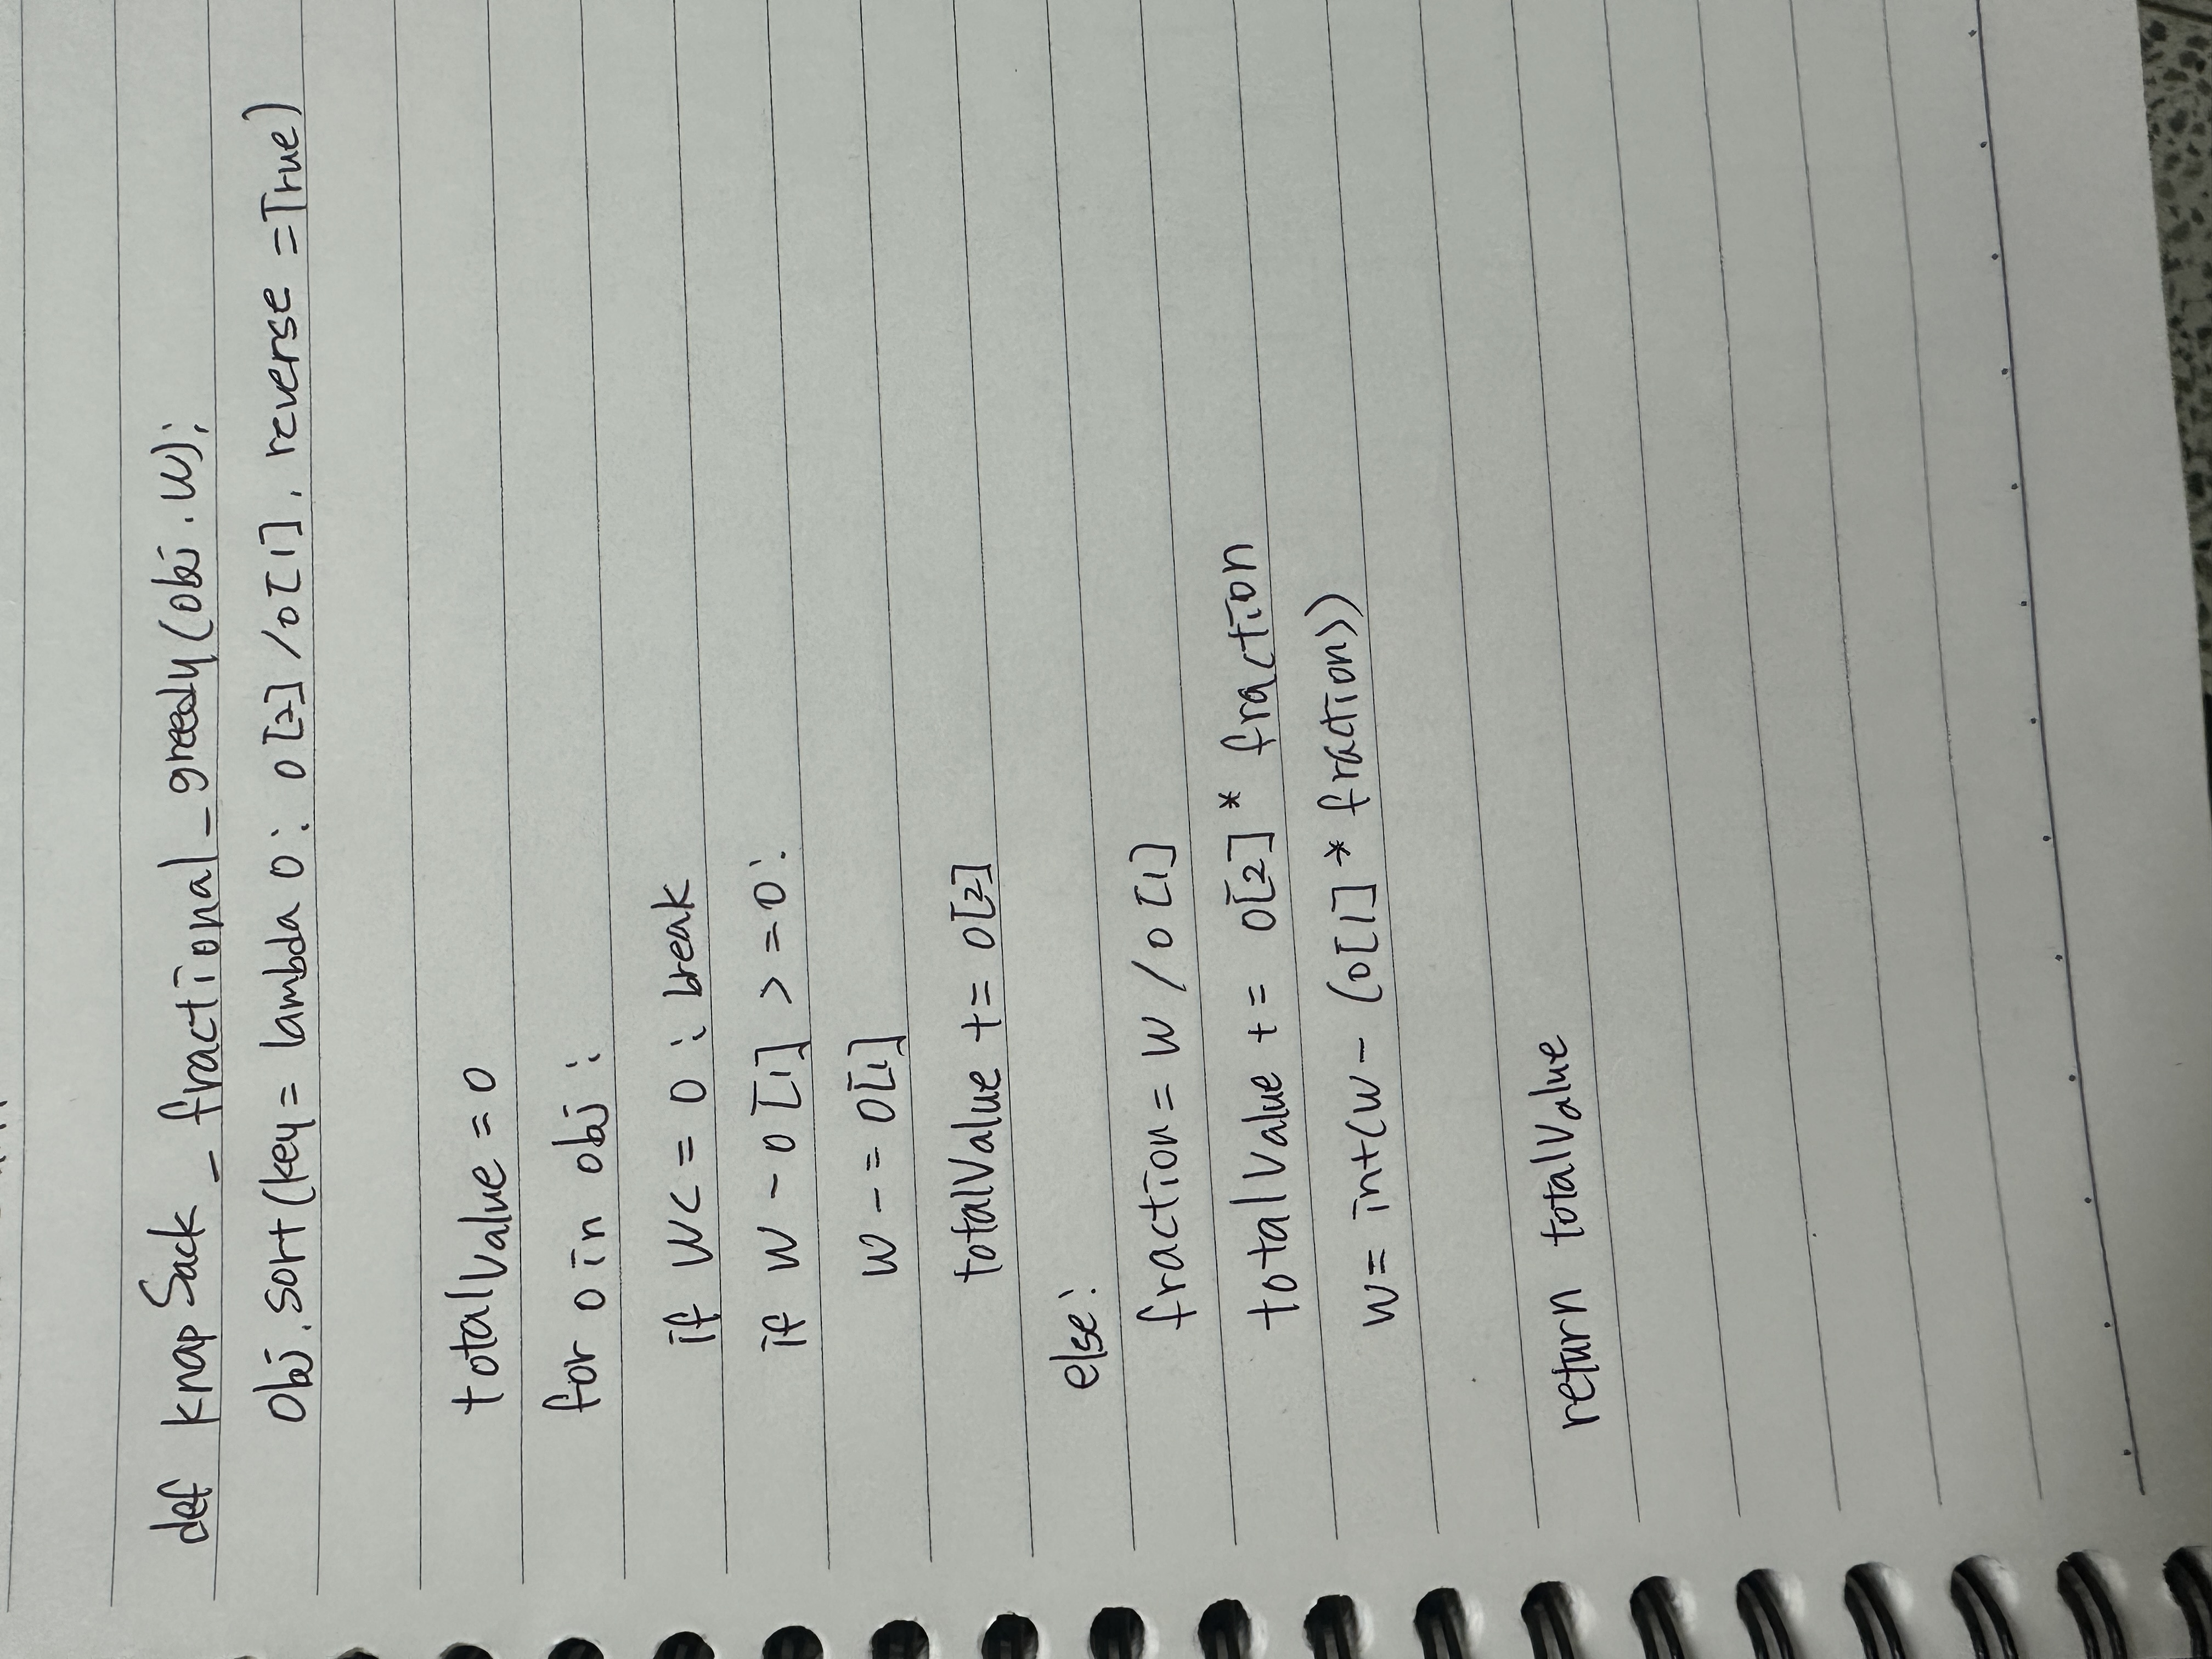 def knapSack_fractional_greedy(obj, W):
obj.sort(key= lambda o: o[2]/o[1], reverse =True)
totalValue = 0
for o in obj :
if W<= 0 : break
if W - o[1] >=0:
W -= o[1]
totalValue += o[2]
else:
fraction = W / o[1]
totalValue += o[2] * fraction
W= int(W- (o[1] * fraction))
return totalValue